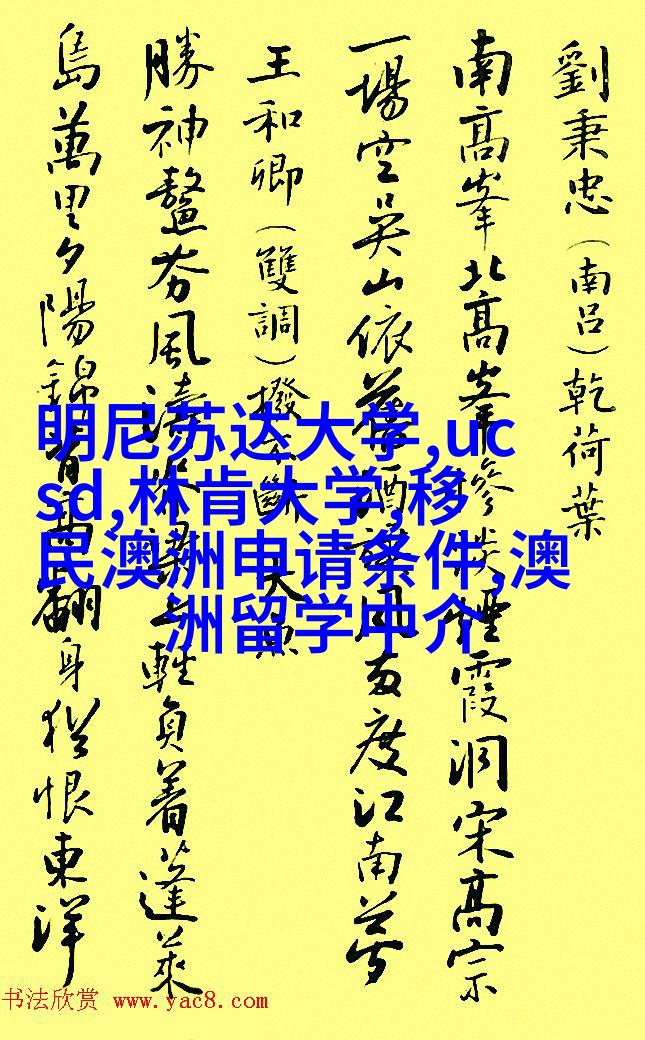 劉秉忠(南呂)乾荷葉
南高峯北高峯慘淡煙霞洞宋高宗
一場空吳山依舊酒旗風兩度江南夢
王和卿(雙調)撥不斷 大魚
勝神鼇夯風濤脊梁上輕負着蓬萊
島萬里夕陽錦背高翻身猶恨東洋
明尼苏达大学,uc
sd,林肯大学,移
民澳洲申请条件,澳
洲留学中介
书法欣赏 www.yac8.com